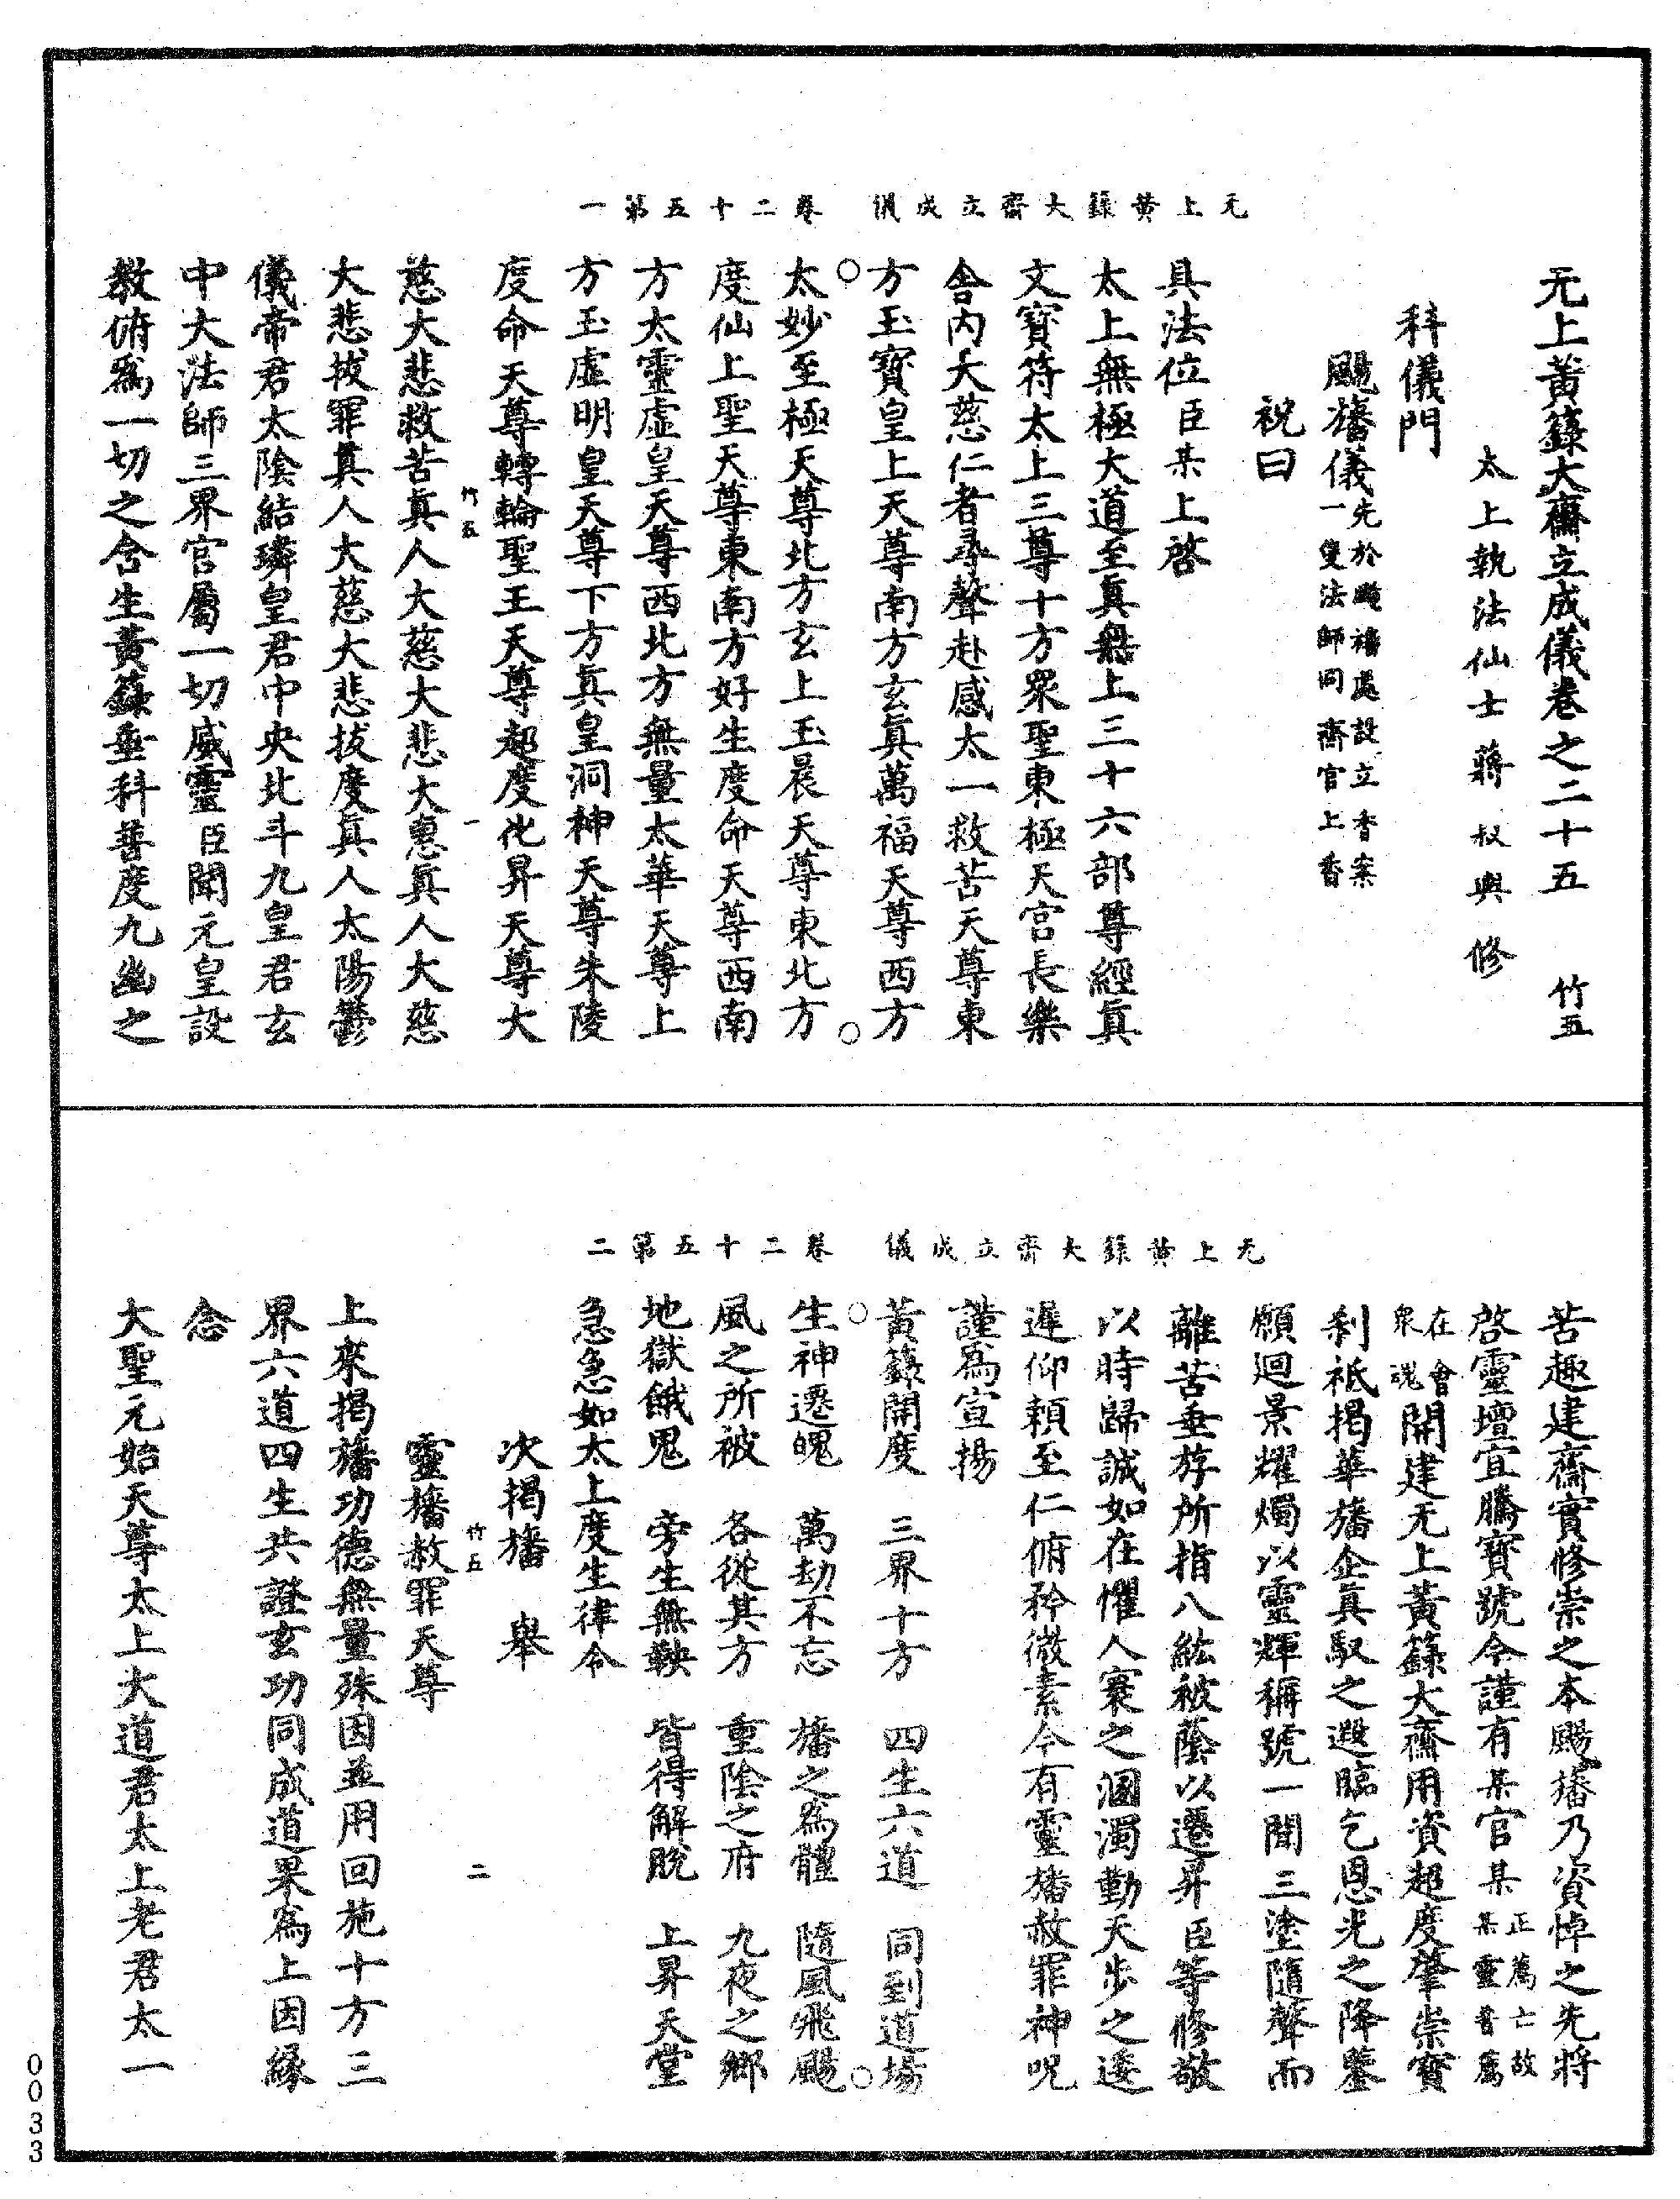 无上黃籙大齋立成儀卷之二十五　竹五
太上執法仙士蔣叔輿修
科儀門
颺旛儀先於颺旛處設立香案一隻法師同齋官上香
祝曰
具法位臣某上啓
太上無極大道至眞無上三十六部尊經眞
文寶符太上三尊十方眾聖東極天宮長樂
舍內大慈仁者尋聲赴感太一救苦天尊東
方玉寶皇上天尊南方玄眞萬福天尊西方
无上黃籙大齋立成儀　卷二十五第一
太妙至極天尊北方玄上玉晨天尊東北方
度仙上聖天尊東南方好生度命天尊西南
方太靈虛皇天尊西北方無量太華天尊上
方玉虛明皇天尊下方眞皇洞神天尊朱陵
度命天尊轉輪聖王天尊超度化昇天尊大
竹五　一
慈大悲救苦眞人大慈大悲大惠眞人大慈
大悲拔罪眞人大慈大悲拔度眞人太陽鬱
儀帝君太陰結璘皇君中央北斗九皇君玄
中大法師三界官屬一切威靈臣聞元皇設
教俯爲一切之含生黃籙垂科普度九幽之
苦趣建齋實修崇之本颺旛乃資悼之先將
啓靈壇宜騰寶號今謹有某官某正薦亡故某靈普薦
在會衆魂開建无上黃籙大齋用資超度肇崇寶
刹祇揭華旛企眞馭之遐臨乞恩光之降鑒
願迴景耀燭以靈輝稱號一聞三塗隨聲而
離苦垂斿所指八紘被蔭以遷昇臣等修敬
以時歸誠如在懼人寰之溷濁勤天步之逶
遲仰賴至仁俯矜微素今有靈旛赦罪神呪
謹爲宣揚
黃籙開度　三界十方　四生六道　同到道場
无上黃籙大齋立成儀　卷二十五第二
生神遷魄　萬劫不忘　旛之爲體　隨風飛颺
風之所被　各從其方　重陰之府　九夜之鄉
地獄餓鬼　旁生無鞅　皆得解脫　上昇天堂
急急如太上度生律令
次揭旛　舉
竹五　二
靈旛赦罪天尊
上來揭旛功德無量殊因並用回施十方三
界六道四生共證玄功同成道果爲上因緣
念
大聖元始天尊太上大道君太上老君太一
0033